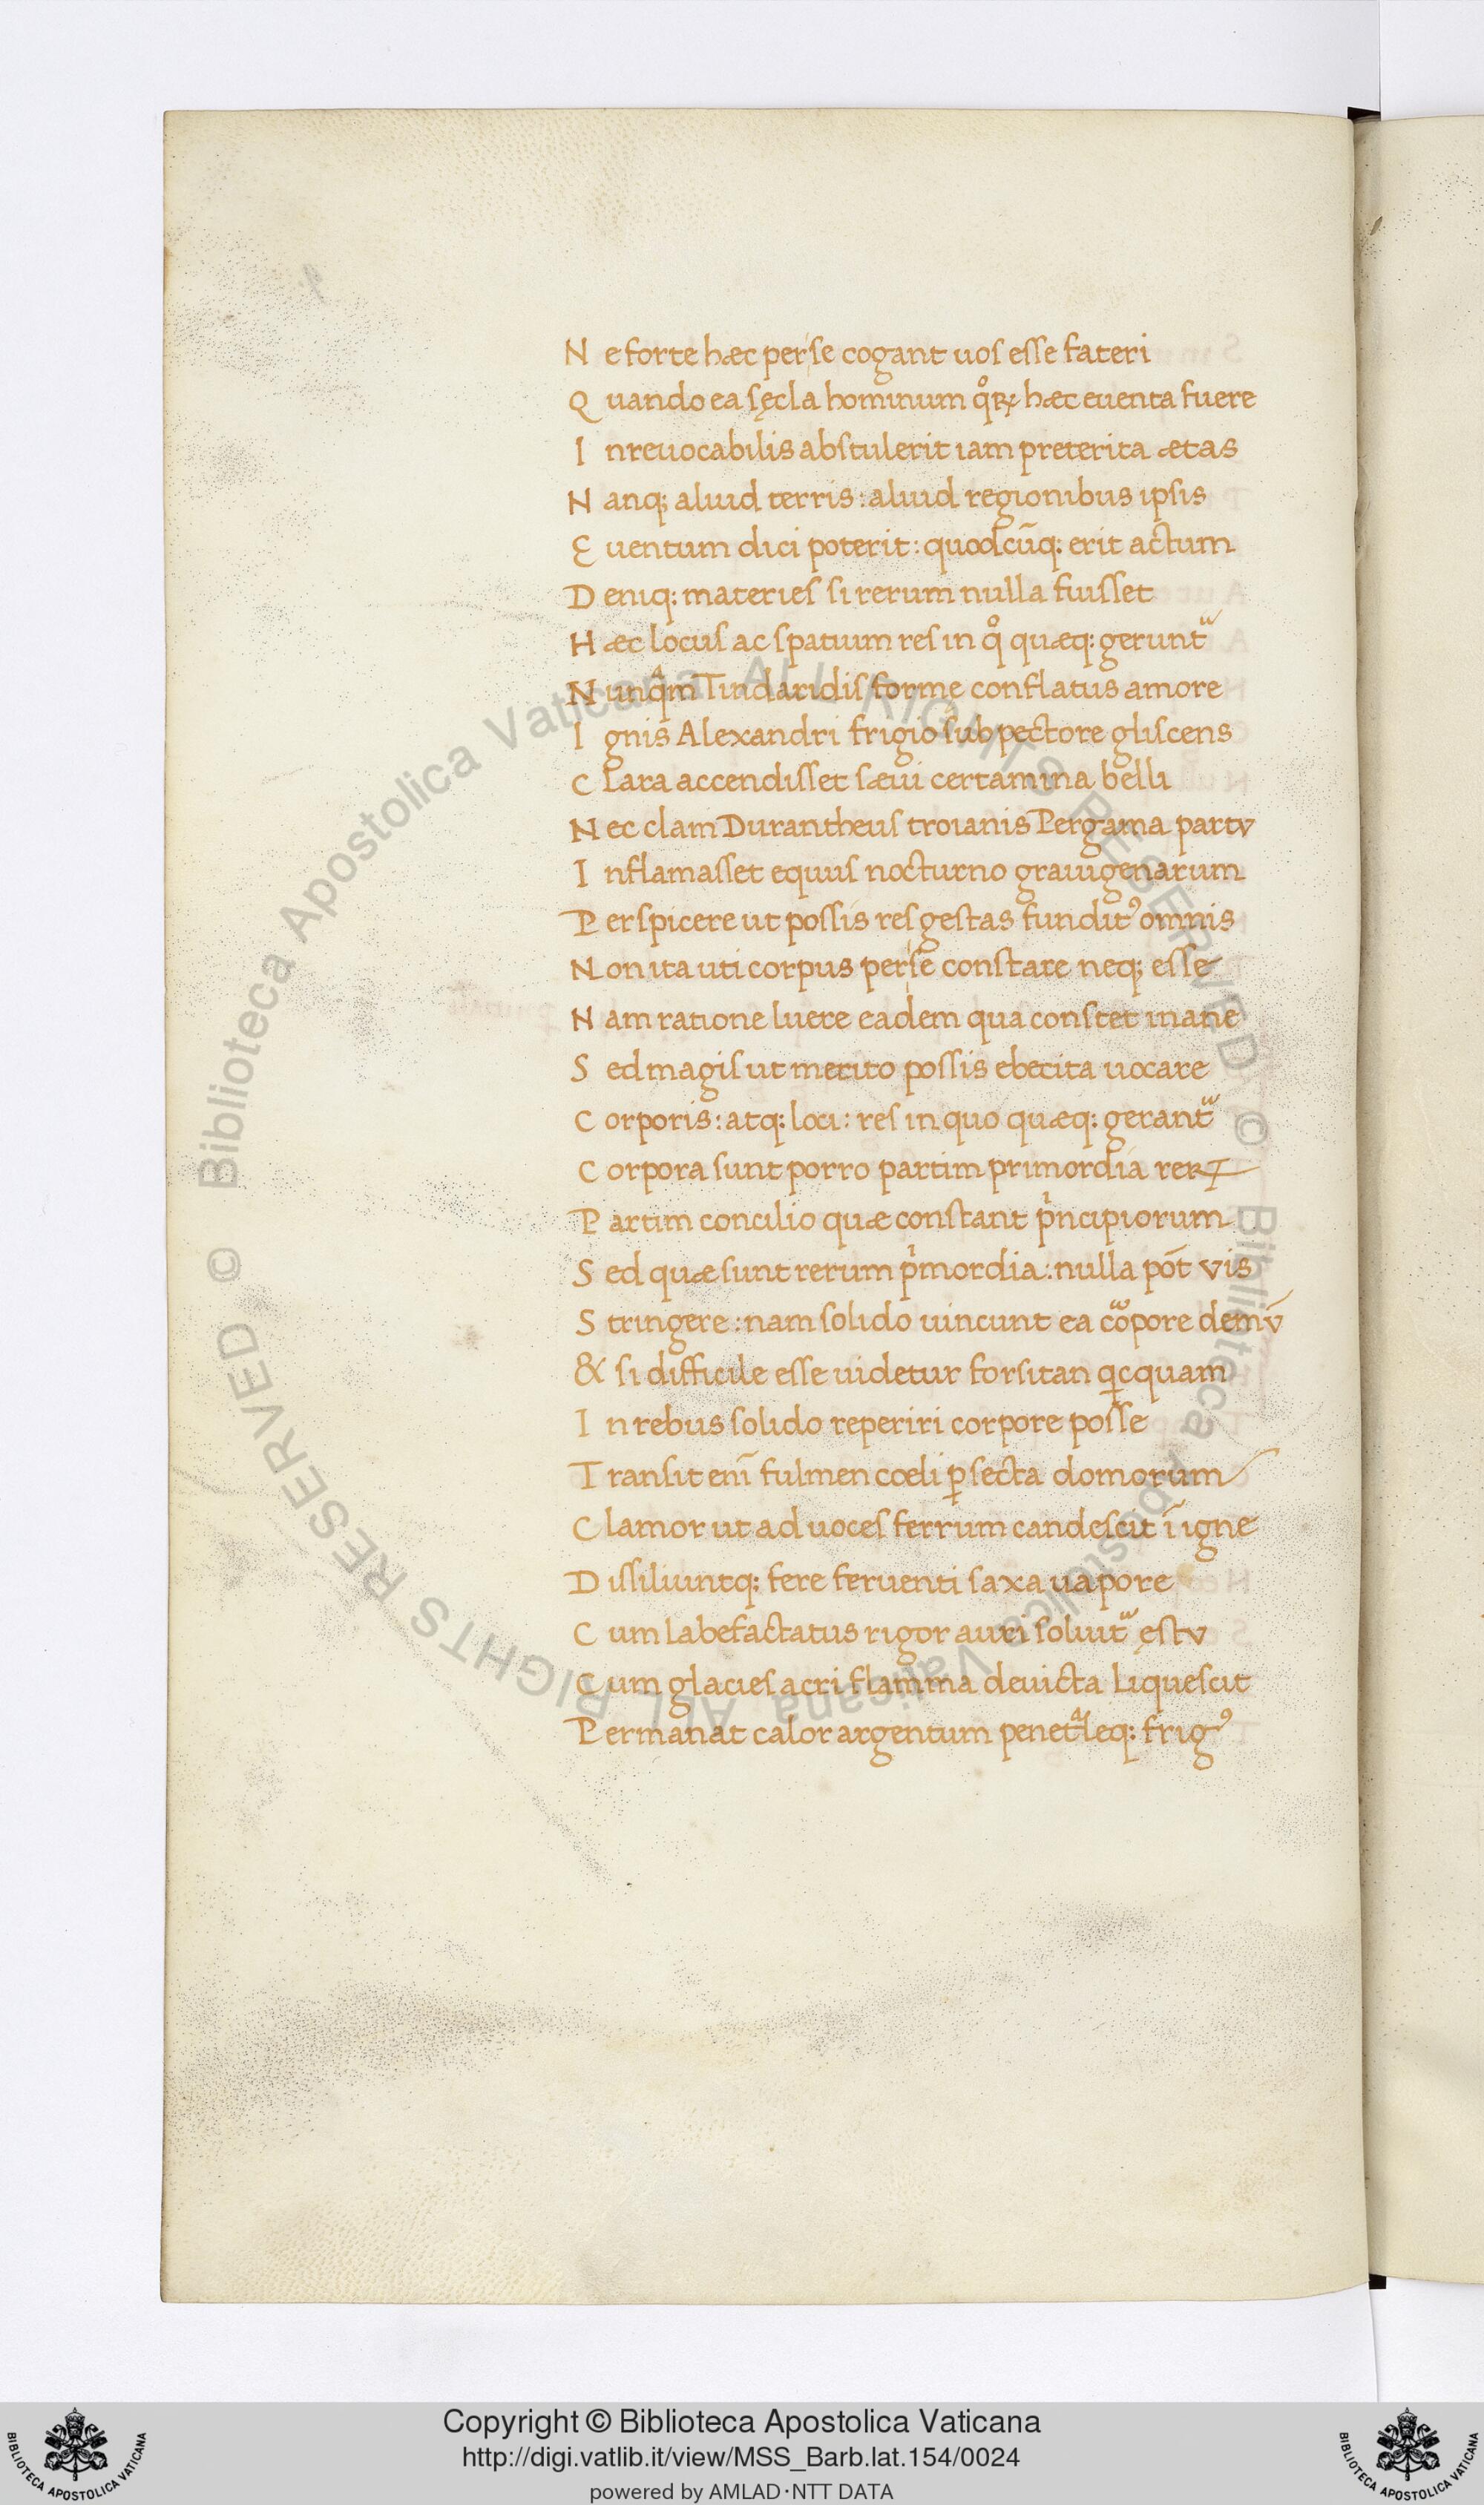 Ne forte hæc per se cogant uos esse fateri
Quando ea sęcla hominum qͦꝝ hæc euenta fuere
Inreuocabilis abstulerit iam preterita ætas
Nanq; aluid terris: aluid regionibus ipsis
Euentum dici poterit: quodcūq: erit actum
Deniq: materies si rerum nulla fuisset
Hæc locus ac spatium res in qͦ quæq: gerunt᷑
Nunqᷓm Tindaridis forme conflatus amore
Ignis Alexandri frigio sub pectore gliscens
Clara accendisset sæui certamina belli
Nec clam Durantheus troianis Pergama partv
Inflamasset equus nocturno graiugenarum
Perspicere ut possis res gestas fundit᾽ omnis
Non ita uti corpus per se constare neq; esse
Nam ratione luere eadem qua constet inane
Sed magis ut merito possis ebetita uocare
Corporis: atq: loci: res in quo quæq: gerant᷑
Corpora sunt porro partim primordia reꝝ
Partim concilio quæ constant pͥncipiorum
Sed quæ sunt rerum pͥmordia: nulla pōt vis
Stringere: nam solido uincunt ea co᷑pore demv̄
& si difficile esse uidetur forsitan qͥcquam
In rebus solido reperiri corpore posse
Transit enī fulmen coeli ꝑ secta domorum
Clamor ut ad uoces ferrum candescit ī igne
Dissiliuntq: fere feruenti saxa uapore
Cum labefactatus rigor auri soluit᷑ ęstv
Cum glacies acri flamma deuicta liquescit
Permanat calor argentum penetᷓleq: frigꝰ
Copyright © Biblioteca Apostolica Vaticana
http://digi.vatlib.it/view/MSS_Barb.lat.154/0024
powered by AMLAD·NTT DATA
BIBLIOTECA APOSTOLICA VATICANA
BIBLIOTECA APOSTOLICA VATICANA
© Biblioteca Apostolica Vaticana ALL RIGHTS RESERVED © Biblioteca Apostolica Vaticana ALL RIGHTS RESERVED